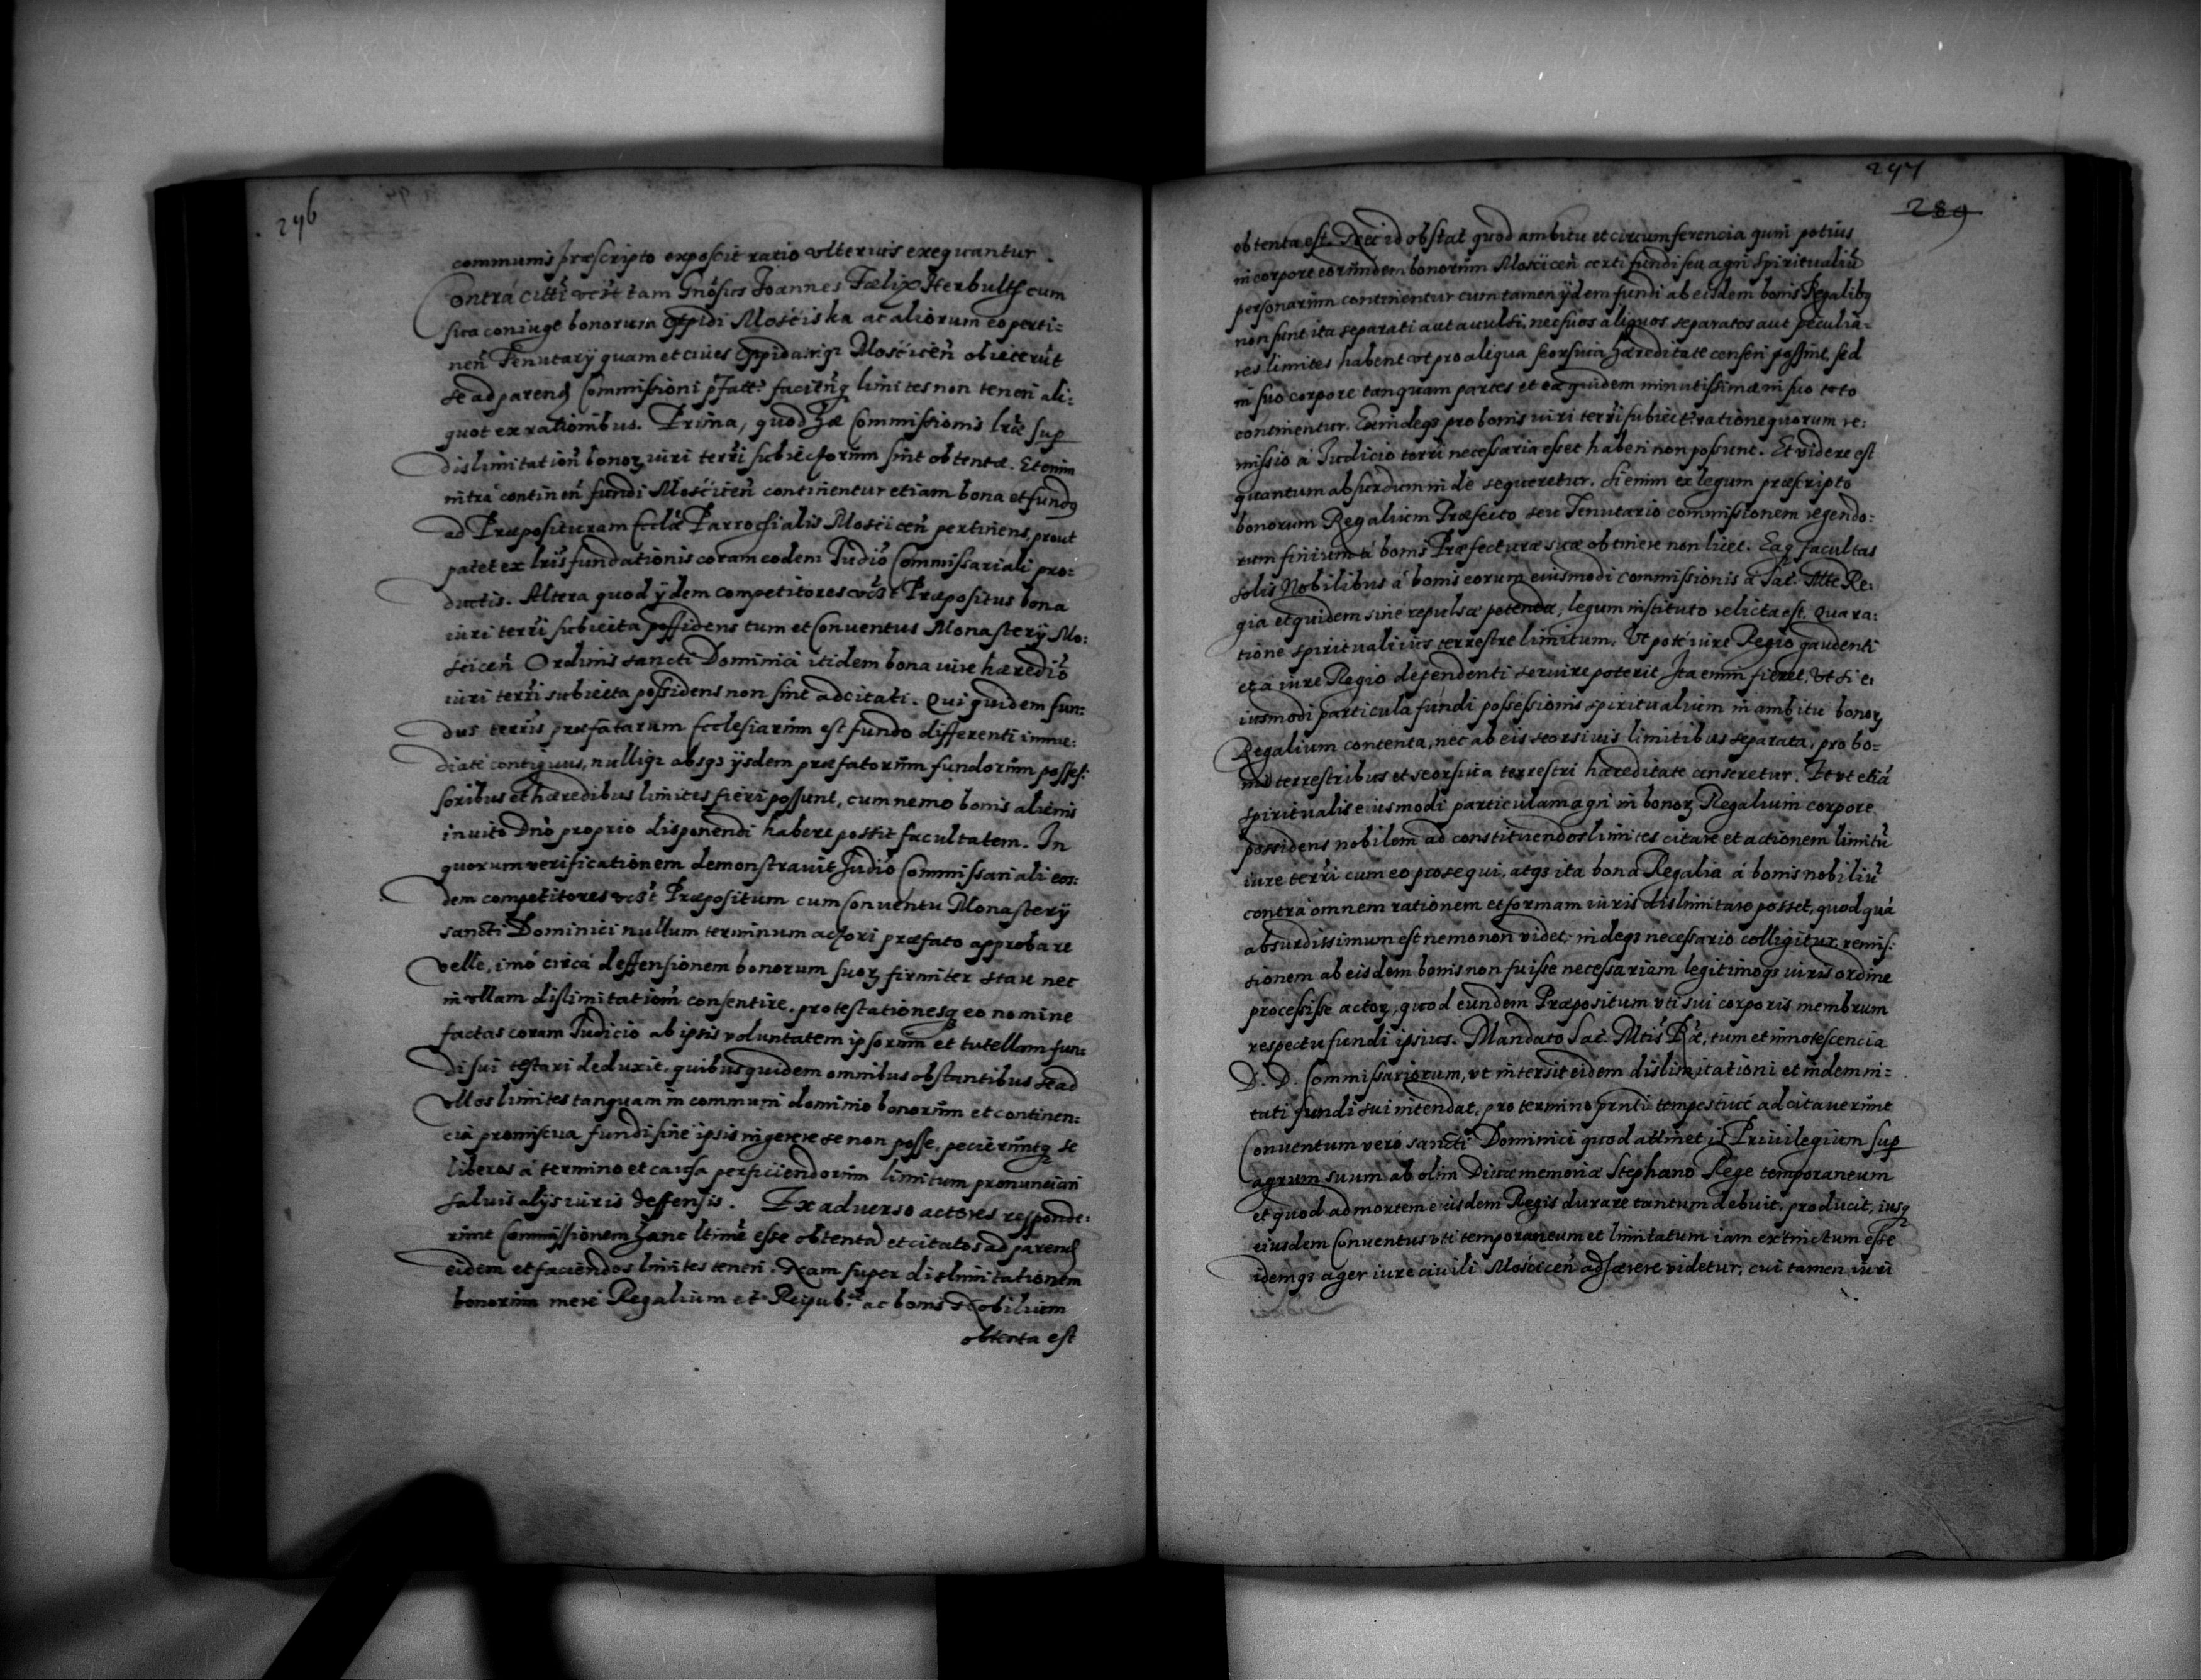 296
communis præscripto exposcit ratio vlterius exequantur.
Contrá citti vcst tam Gnosus Joannes Fælix Herbultſ cum
sua coniuge bonorum Oppidi Mościska ac aliorum eo perti=
neñ Tenutarÿ quam et ciues Oppidaniq3 Mosciceñ obiecerūt
se ad parenđ Commissioni pfatt: faciēnq limites non teneri ali:
quot ex rationibus. Prima, quod hæ Commissionis lræ sup
dislimitationē bonoȝ iuri terri subiectorum sint obtentæ. Etenim
intrá contineñ fundi Mosciceñ continentur etiam bona et fundq
ad Præposituram Ecclæ Parrochialis Mosciceñ pertinens, prout
patet ex lris fundationis coram eodem Judio Commissariali pro:
ductis. Altera quod ÿdem competitores vcst Præpositus bona
iuri terri subiecta possidens tum et Conuentus Monasterÿ Mo:
sciceñ Ordinis sancti Dominici itidem bona iure hæredio
iuri terri subiecta possidens non sint adcitati. Qui quidem fun:
dus terris præfatarum Ecclesiarum est fundo differenti imme:
diate contiguus, nulliq3 absq3 ÿsdem præfatorum fundorum posses:
soribus et hæredibus limites fieri possunt, cum nemo bonis alienis
inuito Dno proprio disponendi habere possit facultatem. In
quorum verificationem demonstrauit Judio Commissariali eos:
dem competitores vcst Præpositum cum Conuentu Monasterÿ
sancti Dominici nullum terminum actori præfato approbare
velle, imó circá deffensionem bonorum suoȝ firmiter stare nec
in vllam dislimitationē consentire, protestationesq eo nomine
factas coram Judicio ab ipsis voluntatem ipsorum et tutellam fun:
di sui testari deduxit, quibus quidem omnibus obstantibus se ad
vllos limites tanquam in communi dominio bonorum et continen:
cia promiscua fundi sine ipsis ingerere se non posse, pecieruntq se
liberos á termino et causa perficiendorum limitum pronunciari
saluis alÿs iuris deffensis. Ex aduerso actores responde:
runt Commissionem hanc ltime esse obtentā et citatos ad parenđ
eidem et faciendos limites teneri. Nam super dislimitationem
bonorum mere Regalium et Reipub: ac bonis Nobilium
obtenta est
297
289
obtenta est. Nec id obstat quod ambitu et circumferencia quin potius
in corpore eorūmdem bonorum Mosciceñ certi fundi seu agri Spiritualiū
personarum continentur cum tamen ÿdem fundi ab eisdem bonis Regalibq
non sint ita separati aut auulsi, nec suos aliquos separatos aut peculia=
res limites habent vt pro aliqua seorsiua hæreditate censeri possint, sed
in suo corpore tanquam partes et eæ quidem minutissimæ in suo toto
continentur. Exindeq3 pro bonis iuri terri subiect: ratione quorum re:
missio á Judicio terri necessaria esset haberi non possunt. Et videre est
quantum absurdum in de sequeretur. Si enim ex legum præscripto
bonorum Regalium Præfecto seu Tenutario commissionem regendo:
rum finium á bonis Præfecturæ suæ obtinere non licet. Eaq facultas
solis Nobilibus á bonis eorum eiusmodi commissionis á Sac. Mtte Re:
gia et quidem sine repulsa petendæ, legum instituto relicta est. Qua ra:
tione spirituali ius terrestre limitum. Vt poté iure Regio gaudenti
et á iure Regio dependenti seruire poterit Ita enim fieret, vt si e:
iusmodi particula fundi possessionis spiritualium in ambitu bonoȝ
Regalium contenta, nec ab eis seorsiuis limitibus separata, pro bo=
nis terrestribus et seorsiua terrestri hæreditate censeretur. Et vt etiá
spiritualis eiusmodi particulam agri in bonoȝ Regalium corpore
possidens nobilem ad constituendos limites citare et actionem limitū
iure terri cum eo prosequi, atq3 ita bona Regalia á bonis nobiliū
contrá omnem rationem et formam iuris dislimitare posset, quod quá
absurdissimum est nemo non videt, indeq3 necessario colligitur, remis:
sionem ab eisdem bonis non fuisse necessariam legitimoq3 iuris ordine
processisse actoȝ, quod eundem Præpositum vti sui corporis membrum
respectu fundi ipsius. Mandato Sac. Mtis Ræ, tum et innotescencia
D. D. Commissariorum, vt intersit eidem dislimitationi et indemni=
tati fundi sui intendat, pro termino prnti tempestiué adcitauerunt
Conuentum veró sancti Dominici quod attinet is Priuilegium sup
agrum suum ab olim Diuæ memoriæ Stephano Rege temporaneum
et quod ad mortem eiusdem Regis durare tantum debuit, producit, iusq
eiusdem Conuentus vti temporaneum et limitatum iam extinctum esse
idemq3 ager iure ciuili Mosciceñ adhærere videtur, cui tamen iuri